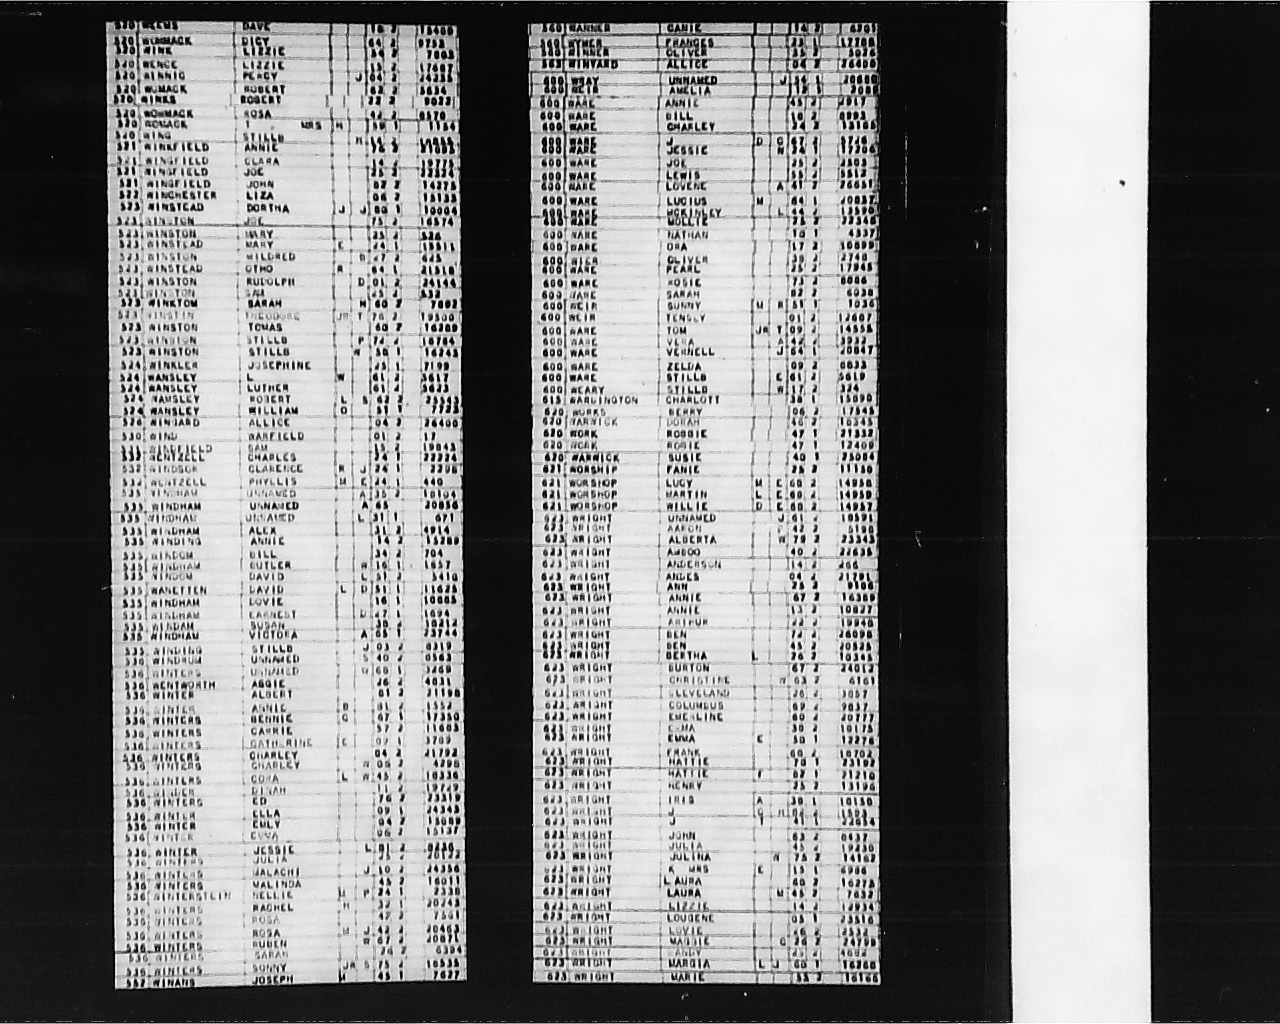 520 WEEMS DAVE 16 2 15408
520 WOMMACK DICY 64 2 9758
520 WINK LIZZIE 54 2 7603
520 WENCE LIZZIE 15 2 17681
520 WINNIG PERCY J 04 2 24335
520 WOMACK ROBERT 62 2 5634
520 WINKS ROBERT 22 2 9022
520 WOMMACK ROSA 42 2 6570
520 WOMACK T MRS H 59 1 1154
520 WING STILLB H
521 WINKFIELD ANNIE
521 WINGFIELD CLARA 14 2 19775
521 WINGFIELD JOE 25 2 22524
521 WINGFIELD JOHN 82 2 14275
522 WINCHESTER LIZA 06 2 15135
523 WINSTEAD DORTHA J J 80 1 10004
523 WINSTON JOE 75 2 16574
523 WINSTON MARY 25 2 526
523 WINSTEAD MARY E 24 1 15511
523 WINSTON MILDRED B 27 2 625
523 WINSTEAD OTHO R 64 1 21518
523 WINSTON RUDOLPH D 01 2 24144
523 WINSTON SAM 25 2 532
523 WINKTOM SARAH H 60 2 7802
523 WINSTIN THEODORE JR T 76 2 19500
523 WINSTON TOMAS 60 2 16289
523 WINSTON STILLB P 72 2 16784
523 WINSTON STILLB W 38 1 16245
524 WINKLER JOSEPHINE 25 1 7199
524 WANSLEY L W 61 2 5617
524 WANSLEY LUTHER 61 2 5623
524 WAMSLEY ROBERT L S 62 2 25543
524 WANSLEY WILLIAM O 51 1 7723
526 WINGARD ALLICE 04 2 26400
530 WIND BARFIELD 01 2 17
531 WINDFIELD SAM 15 2 19043
532 WENDZELL CHARLES 24 1 2294
532 WINDSOR CLARENCE R J 24 1 2296
532 WENTZELL PHYLLIS M E 24 1 440
535 WINDHAM UNNAMED A 35 2 18104
535 WINDHAM UNNAMED A 65 20856
535 WINDHAM UNNAMED L 31 1 671
535 WINDHAM ALEX 31 2 4916
535 WINDING ANNIE 14 2 15289
535 WINDOM BILL 34 2 704
535 WINDHAM BUTLER W 16 1 1657
535 WINDOM DAVID L 51 2 5410
535 WANETTEN DAVID L D 51 1 11625
535 WINDHAM DOVIE 16 1 10665
535 WINDHAM EARNEST D 47 1 1694
535 WINDAM SUSAN 38 2 18212
535 WINDHAM VICTORA A 65 1 23744
535 WINDING STILLB J 03 2 8319
536 WINDRUM UNNAMED S 40 2 8563
536 WINTERS UNNAMED W 60 1 3268
536 WENTWORTH AGGIE 26 2 4031
536 WINTER ALBERT 61 2 21198
536 WINTER ANNIE B 81 2 1552
536 WINTERS BENNIE C 67 1 17350
536 WINTERS CARRIE 57 2 11683
536 WINTERS CATHERINE E 07 1 3789
536 WINTERS CHARLEY 04 2 21792
536 WINTERS CHARLEY W 06 2 4296
536 WINTERS CORA L W 45 2 18336
536 WINDER DINAH 11 2 19729
536 WINTERS ED 76 2 23519
536 WINTER ELLA 09 1 24343
536 WINTER EMLY 04 2 15089
536 WINTER EMMA 06 2 15137
536 WINTER JESSIE L 81 2 8256
536 WINTERS JULIA 75 2 20122
536 WINTERS MALACHI J 10 2 24356
536 WINTERS MALINDA 45 2 16011
536 WINTERSTEIN NELLIE M P 24 1 2330
536 WINTERS RACHEL H 32 1 20243
536 WINTERS ROSA 42 2 7561
536 WINTERS ROSA M J 42 2 20463
536 WINTERS RUBEN W 67 2 20871
536 WINTERS SARAH 26 2 6394
536 WINTERS SONNY JR S 75 1 18535
552 WINANS JOSEPH M 45 1 7627
560 WANNER CANIE 14 2 6303
560 WYMER FRANCES 23 1 17708
560 WINNER OLIVER 58 1 5026
563 WINYARD ALLICE 04 2 26400
600 WRAY UNNAMED J 54 1 20880
600 WEIR AMELIA 12 1
600 WARE ANNIE 45 2 2917
600 WARE BILL 10 2 8993
600 WARE CHARLEY 24 2 13165
600 WARE J D C 67 2
600 WARE JESSIE W 24 2
600 WARE JOE 25 2 2503
600 WARE LEWIS 55 2 5512
600 WARE LOVENE A 41 2 26651
600 WARE LUCIUS M 64 1 20837
600 WARE MCKINLEY L 44 2 13590
600 WARE MOLLIE 72 2 22346
600 WARE NATHAN 10 1 4337
600 WARE ORA 17 2 16899
600 WIER OLIVER 38 2 2740
600 WARE PEARL 25 2 17945
600 WARE ROSIE 73 2 6086
600 WARE SARAH 02 2 6038
600 WEIR SONNY M R 51 1 1036
600 WEIR TENSLY 01 2 12607
600 WARE TOM JR T 09 2 14555
600 WARE VERA A 42 2 3932
600 WARE VERNELL J 64 1 20847
600 WARE ZELDA 09 2 6633
600 WARE STILLB E 61 2 5619
600 WEARY STILLB W 17 2 324
615 WARDINGTON CHARLOTT 38 1 15090
620 WORKS BERRY 06 2 17545
620 WARWICK DORAH 46 2 16345
620 WORK ROBBIE 47 1 21332
620 WORK ROBIE 47 1 12409
620 WARWICK SUSIE 40 1 25084
621 WORSHIP FANIE 25 2 11150
621 WORSHOP LUCY M E 60 2 14956
621 WORSHOP MARTIN L E 60 2 14959
621 WORSHOP WILLIE D E 60 2 14957
623 WRIGHT UNNAMED J 61 2 18591
623 WRIGHT AARON F 42 2 596
623 WRIGHT ALBERTA W 79 2 23345
623 WRIGHT AMBOO 40 2 22635
623 WRIGHT ANDERSON 14 2 266
623 WRIGHT ANDES 04 2 21791
623 WRIGHT ANN 25 2 9106
623 WRIGHT ANNIE 67 2 16389
623 WRIGHT ANNIE 13 2 10827
623 WRIGHT ARTHUR 22 2 19946
623 WRIGHT BEN 72 2 26096
623 WRIGHT BEN 45 2 20525
623 WRIGHT BERTHA L 76 2 10343
623 WRIGHT BURTON 67 2 24012
623 WRIGHT CHRISTINE W 63 2 6161
623 WRIGHT CLEVELAND 26 2 3057
623 WRIGHT COLUMBUS 69 2 9837
623 WRIGHT EMERLINE 60 2 20777
623 WRIGHT EMMA 30 2 10175
623 WRIGHT EMMA E 50 1 12276
623 WRIGHT FRANK 68 2 16702
623 WRIGHT HATTIE 70 1 23192
623 WRIGHT HATTIE F 82 1 21210
623 WRIGHT HENRY 25 2 13196
623 WRIGHT IRIS A 38 1 16150
623 WRIGHT J C H 02 2 1593
623 WRIGHT J T 41 1 22654
623 WRIGHT JOHN 63 2 6437
623 WRIGHT JULIA 45 2 19250
623 WRIGHT JULINA W 75 2 14162
623 WRIGHT K MRS E 15 1 6986
623 WRIGHT LAURA 60 2 16273
623 WRIGHT LAURA M 45 2 7652
623 WRIGHT LIZZIE 14 2 12934
623 WRIGHT LOUGENE 05 1 23516
623 WRIGHT LOVIE 26 2 2552
623 WRIGHT MAGGIE C 26 2 24799
623 WRIGHT MANDY 25 2 4602
623 WRIGHT MARGIA L J 60 1 16260
623 WRIGHT MARIE 33 2 16166